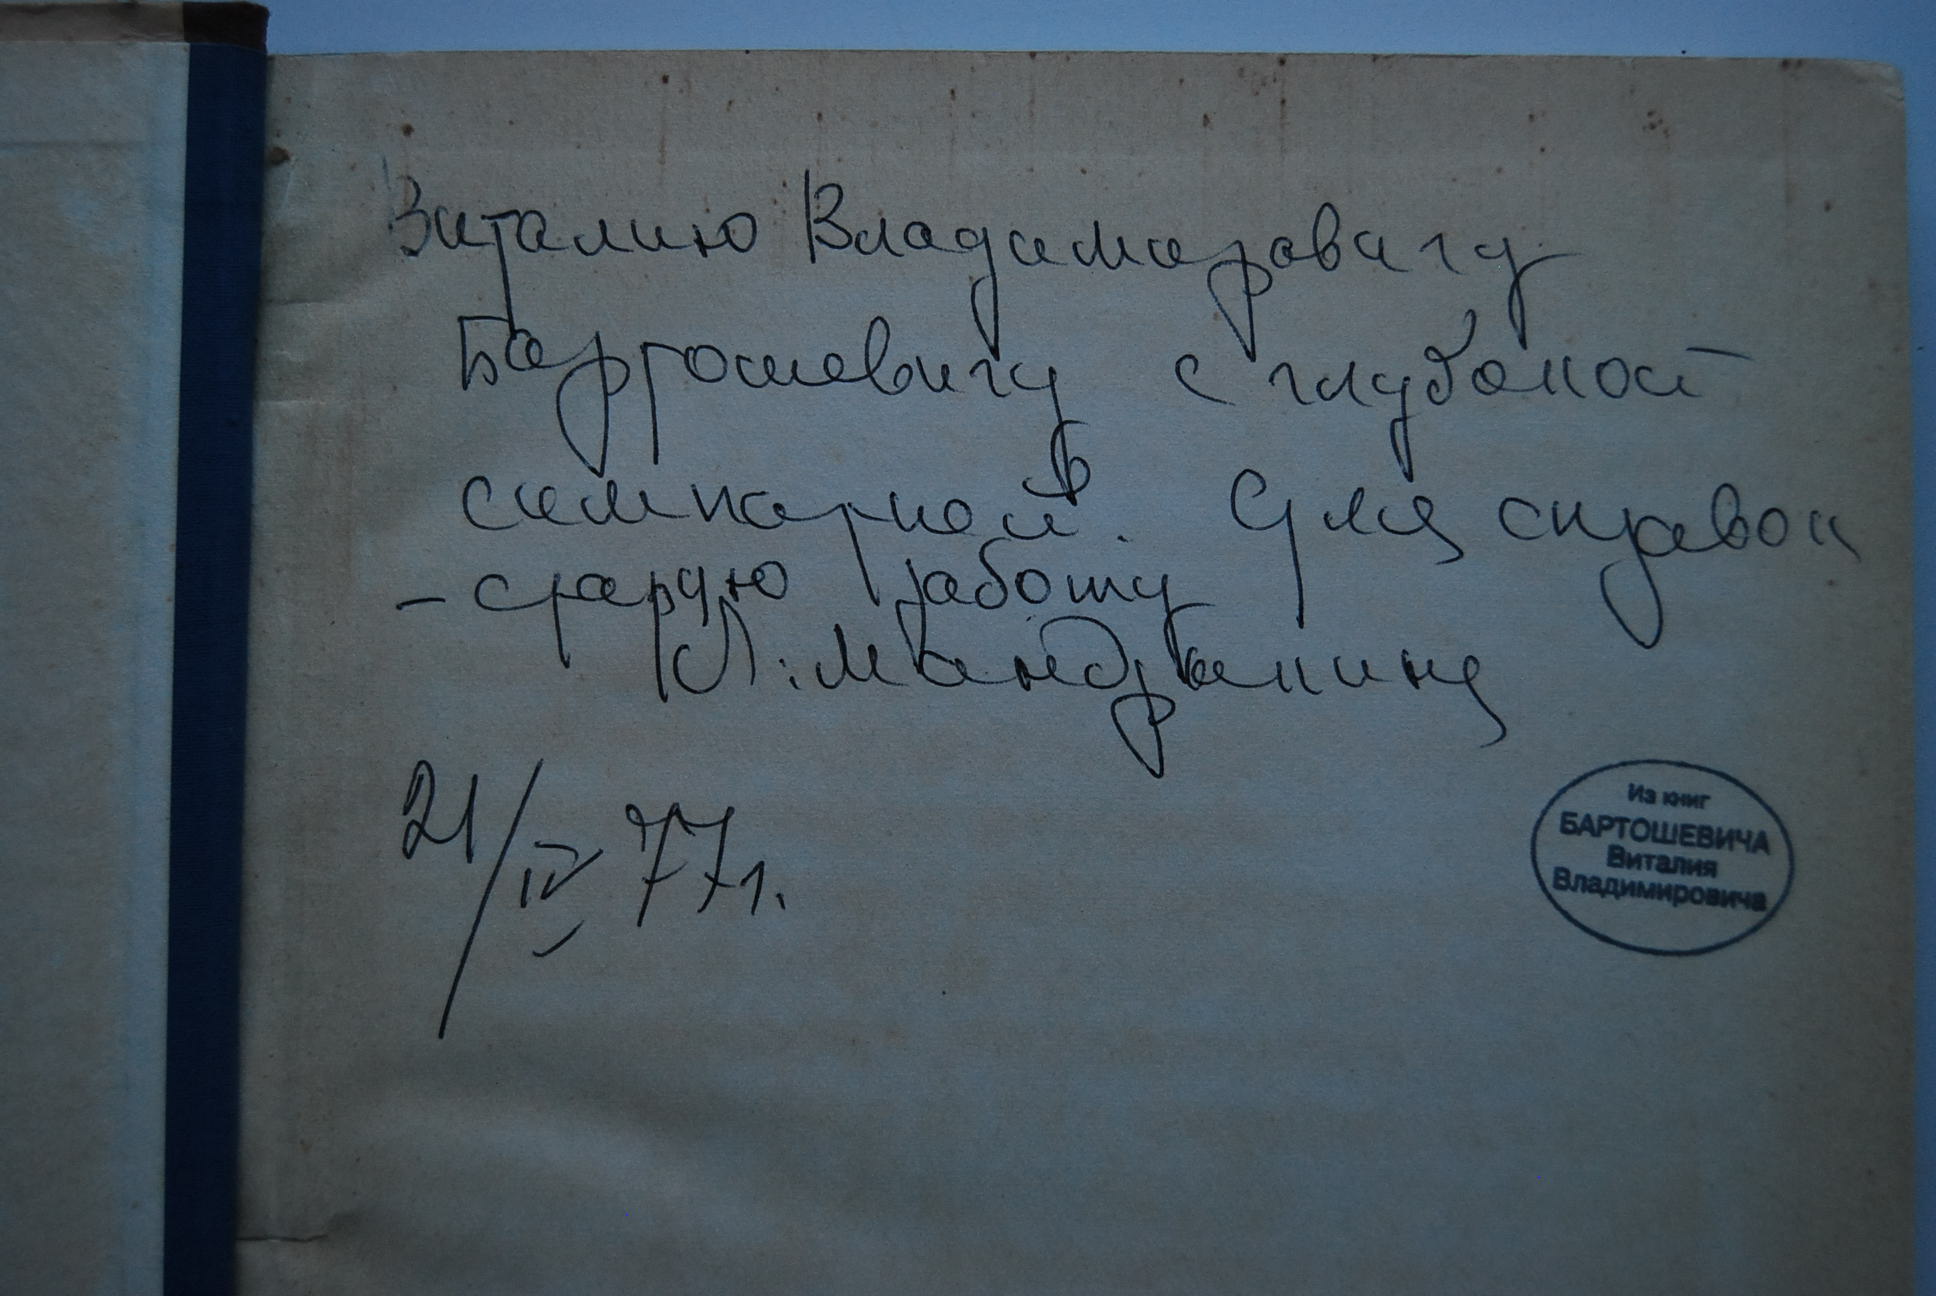 Виталию Владимировичу
Бартошевичу с глубокой
симпатией. Для справок
- старую работу
Л. Мандрыкина
21/IV 77 г.
Из книг
БАРТОШЕВИЧА
Виталия
Владимировича